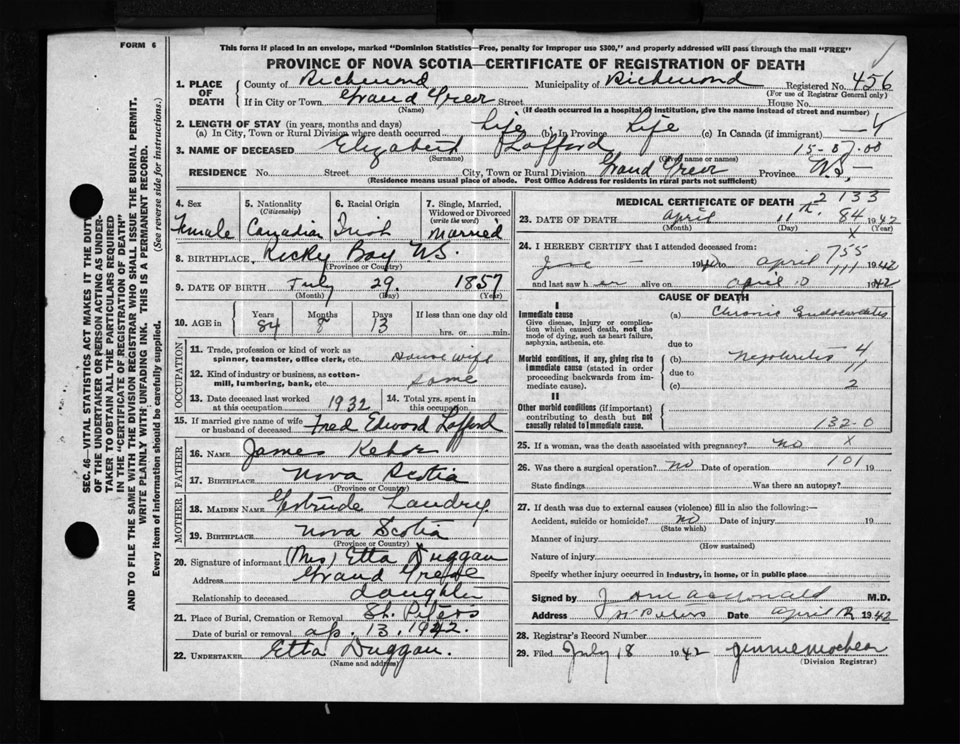 FORM 6
This form if placed in an envelope, marked "Dominion Statistics—Free, penalty for improper use $300," and properly addressed will pass through the mail "FREE"
PROVINCE OF NOVA SCOTIA—CERTIFICATE OF REGISTRATION OF DEATH
1. PLACE OF DEATH County of Richmond Municipality of Richmond Registered No. 456
(For use of Registrar General only)
If in City or Town Grand Greve Street House No.
(Name) (If death occurred in a hospital or institution, give the name instead of street and number)
2. LENGTH OF STAY (in years, months and days)
(a) In City, Town or Rural Division where death occurred Life (b) In Province Life (c) In Canada (if immigrant) —
3. NAME OF DECEASED Elizabeth Lafford 15-07.00
(Surname) (Given name or names)
RESIDENCE No. Street City, Town or Rural Division Grand Greve Province N.S.
(Residence means usual place of abode. Post Office Address for residents in rural parts not sufficient)
4. Sex Female
5. Nationality (Citizenship) Canadian
6. Racial Origin Irish
7. Single, Married, Widowed or Divorced (write the word) Married
8. BIRTHPLACE Rocky Bay N.S.
(Province or Country)
9. DATE OF BIRTH July 29. 1857
(Month) (Day) (Year)
10. AGE in Years 84 Months 8 Days 13 If less than one day old
hrs. or min.
OCCUPATION
11. Trade, profession or kind of work as spinner, teamster, office clerk, etc. House wife
12. Kind of industry or business, as cotton-mill, lumbering, bank, etc. Same
13. Date deceased last worked at this occupation 1932
14. Total yrs. spent in this occupation
15. If married give name of wife or husband of deceased Fred Edword Lafford
FATHER
16. NAME James Kehoe
17. BIRTHPLACE Nova Scotia
(Province or Country)
MOTHER
18. MAIDEN NAME Gertrude Landry
19. BIRTHPLACE Nova Scotia
(Province or Country)
20. Signature of informant (Mrs) Etta Duggan
Address Grand Greve
Relationship to deceased daughter
21. Place of Burial, Cremation or Removal St. Peters
Date of burial or removal ap. 13. 1942.
22. UNDERTAKER Etta Duggan.
(Name and address)
MEDICAL CERTIFICATE OF DEATH 2 133
23. DATE OF DEATH April 11 84 1942
(Month) (Day) (Year)
24. I HEREBY CERTIFY that I attended deceased from: 755
19 to April 11 1942
and last saw her alive on April 10 1942
CAUSE OF DEATH
I
Immediate cause
Give disease, injury or complication which caused death, not the mode of dying, such as heart failure, asphyxia, asthenia, etc.
(a) Chronic Endocarditis
due to
Morbid conditions, if any, giving rise to immediate cause (stated in order proceeding backwards from immediate cause).
(b) Nephritis 4
due to 11
(c) 2
II
Other morbid conditions (if important) contributing to death but not causally related to immediate cause.
132-0
25. If a woman, was the death associated with pregnancy? No X
26. Was there a surgical operation? No Date of operation 101 19
State findings Was there an autopsy?
27. If death was due to external causes (violence) fill in also the following:—
Accident, suicide or homicide? no Date of injury 19
(State which)
Manner of injury
(How sustained)
Nature of injury
Specify whether injury occurred in industry, in home, or in public place
Signed by MacDonald M.D.
Address St Peters Date April 12 1942
28. Registrar's Record Number
29. Filed July 18 1942
(Division Registrar)
SEC. 46—VITAL STATISTICS ACT MAKES IT THE DUTY
OF THE UNDERTAKER OR PERSON ACTING AS UNDER-
TAKER TO OBTAIN ALL THE PARTICULARS REQUIRED
IN THE "CERTIFICATE OF REGISTRATION OF DEATH"
AND TO FILE THE SAME WITH THE DIVISION REGISTRAR WHO SHALL ISSUE THE BURIAL PERMIT.
WRITE PLAINLY WITH UNFADING INK. THIS IS A PERMANENT RECORD.
Every item of information should be carefully supplied. (See reverse side for instructions.)